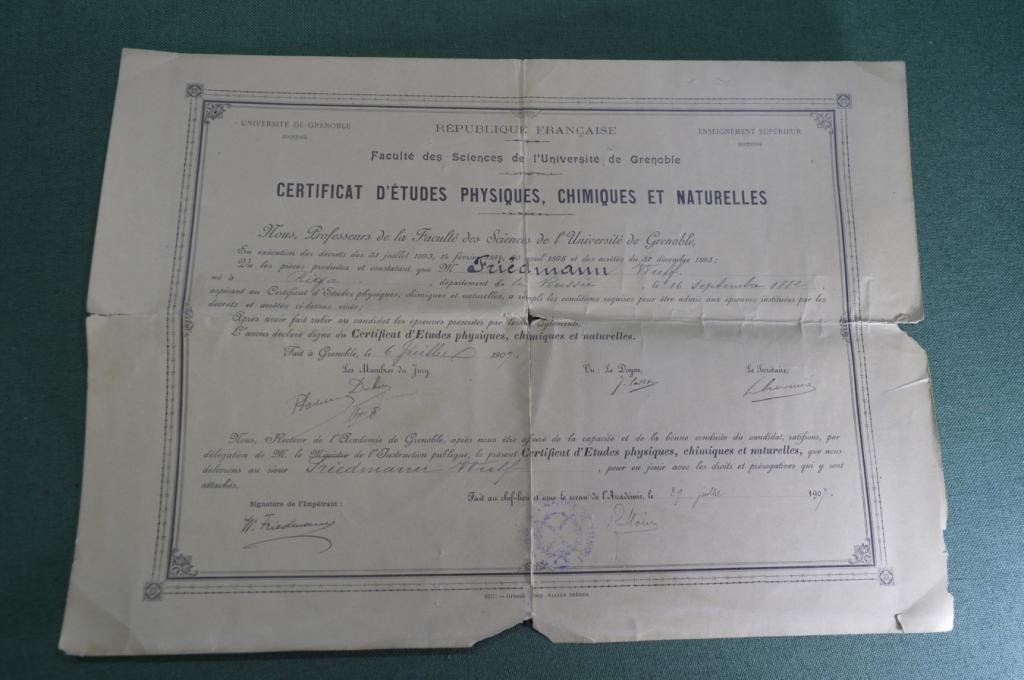 UNIVERSITÉ DE GRENOBLE
RÉPUBLIQUE FRANÇAISE
ENSEIGNEMENT SUPÉRIEUR
Faculté des Sciences de l'Université de Grenoble
CERTIFICAT D'ÉTUDES PHYSIQUES, CHIMIQUES ET NATURELLES
Nous, Professeurs de la Faculté des Sciences de l'Université de Grenoble,
En exécution des décrets des 31 juillet 1893, 14 février avril 1896 et des arrêtés du 31 décembre 1893;
Vu les pièces produites et constatant que M. Friedmann Wulf
né à Riga, département de la Russie, le 16 septembre 1882
aspirant au Certificat d'Études physiques, chimiques et naturelles, a rempli les conditions requises pour être admis aux épreuves instituées par les
décrets et arrêtés ci-dessus visés;
Après avoir fait subir au candidat les épreuves prescrites par lesdits règlements,
L'avons déclaré digne du Certificat d'Études physiques, chimiques et naturelles.
Fait à Grenoble, le 6 Juillet 1907.
Les Membres du Jury,
Vu: Le Doyen,
Le Secrétaire,
Nous, Recteur de l'Académie de Grenoble, après nous être assuré de la capacité et de la bonne conduite du candidat, ratifions, par
délégation de M. le Ministre de l'Instruction publique, le présent Certificat d'Études physiques, chimiques et naturelles, que nous
délivrons au sieur Friedmann Wulf, pour en jouir avec les droits et prérogatives qui y sont
attachés.
Fait au chef-lieu et sous le sceau de l'Académie, le 29 juillet 1907.
Signature de l'Impétrant:
W. Friedmann
Grenoble, imp. ALLIER FRÈRES.